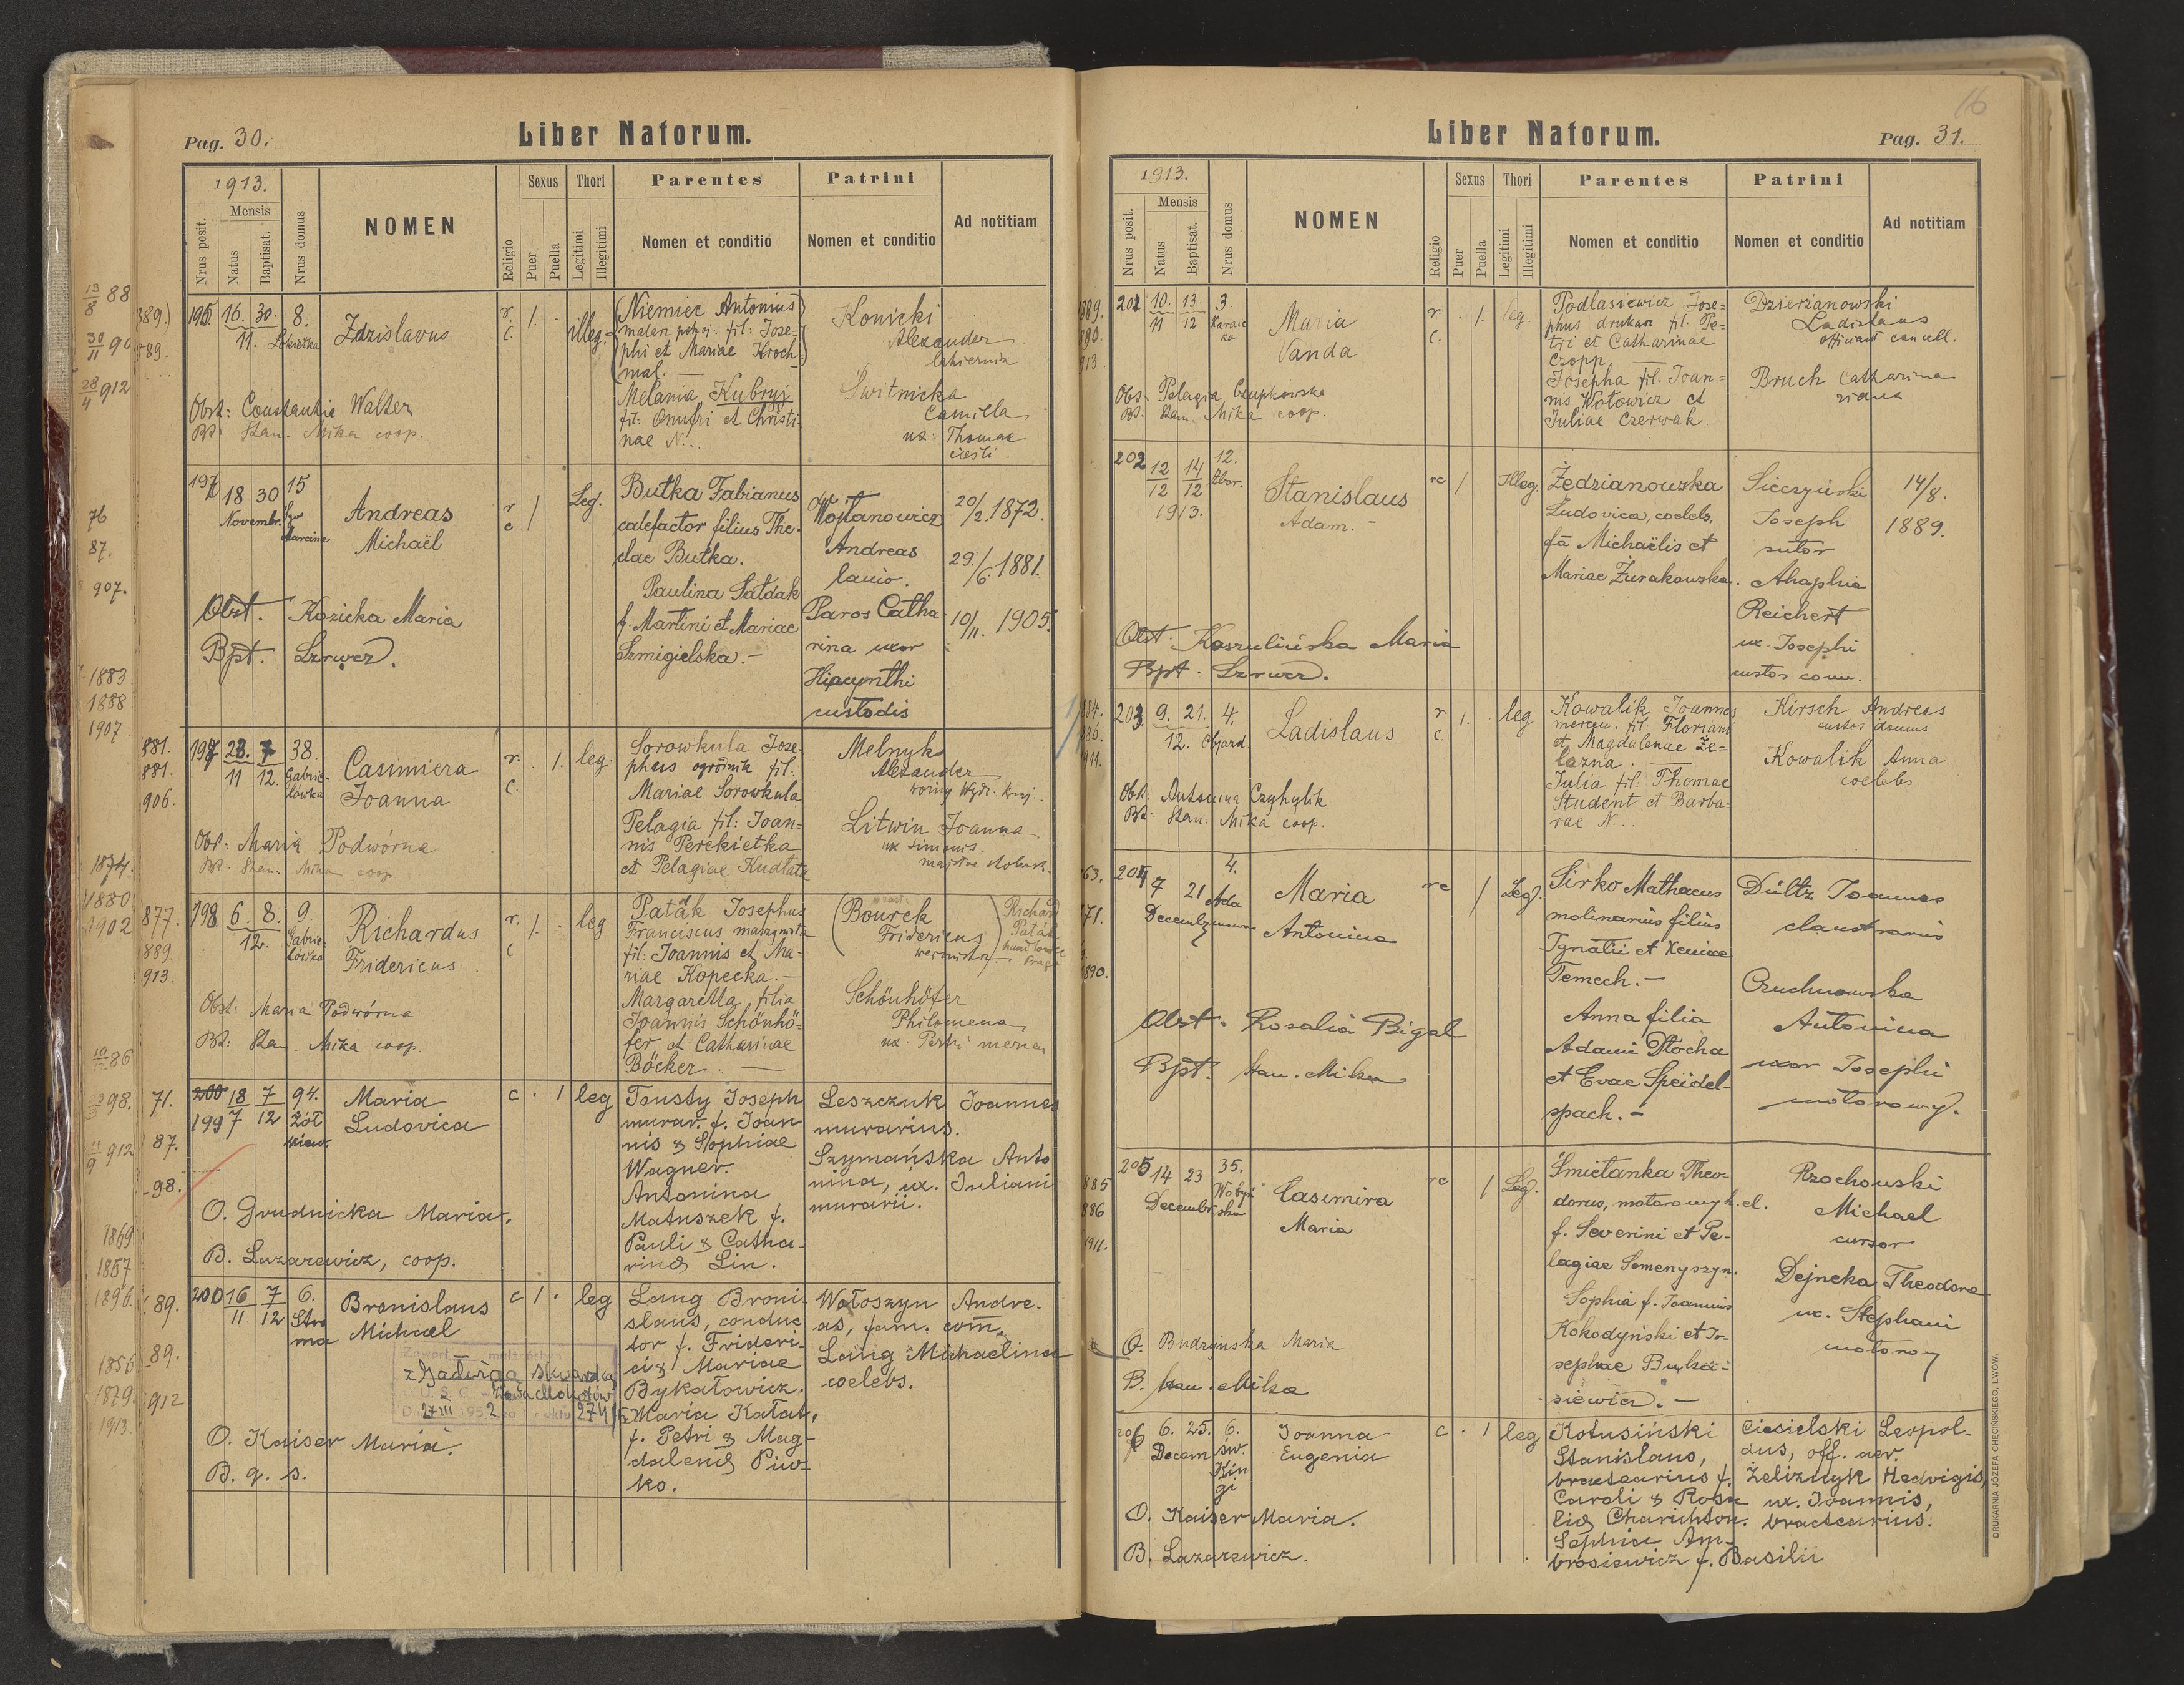 Pag. 30.
Liber Natorum.
1913.
Nrus posit.
Mensis
Natus
Baptisat.
Nrus domus
NOMEN
Religio
Sexus
Puer
Puella
Thori
Legitimi
Illegitimi
Parentes
Nomen et conditio
Patrini
Nomen et conditio
Ad notitiam
16. 30. 8.
11.
Zdzislavus
r. c.
1.
illeg.
(Niemiec Antonius
malarz pokoj. fil: Jose-
phi et Mariae Kroch-
mal. —
Melania Kubryj
fil: Onufri et Christi-
nae N...
Konicki
Alexander
Switnicka
Camilla
ux: Thomae
Obst: Constantia Walter
Bt: Stan. Mika coop.
197
18 30 15
Novembr.
Andreas
Michaël
r c
/
Leg.
Butka Fabianus
calefactor filius The-
clae Butka.
Paulina Sałdak
f. Martini et Mariae
Szmigielska.-
Wojtanowicz
Andreas
lanio.
Paros Catha
rina uxor
Hiacynthi
custodis
20/2. 1872.
29./6. 1881.
10/11. 1905.
Obst. Kozicka Maria
Bpt. Lzrwez.
28. 7 38.
11 12. Gabrie-
lówka
Casimiera
Joanna
r. c.
1.
leg.
Sorowkula Jose-
phus ogrodnik fil:
Mariae Sorowkula
Pelagia fil: Joan-
nis Perekietka
et Pelagiae Kudłata
Melnyk
Alexander
woźny Wydz. Kraj.
Litwin Joanna
ux Simonis.
Obst: Maria Podwórna
Bt: Stan. Mika coop
198 6. 8. 9.
12. Gabrie-
lówka
Richardus
Fridericus
r. c
1.
leg
Paták Josephus
Franciscus maszynista
fil: Joannis et Ma-
riae Kopecka. -
Margaretta filia
Joannis Schönhö-
fer et Catharinae
Böcker. —
(Bourek
Fridericus
Richard
Paták
Schönhöfer
Philomena,
Obst: Maria Podwórna
Bt: Stan. Mika coop.
200 18 7 94.
199 7 12 Żół
kiew.
Maria
Ludovica
c . 1 leg
Tousty Joseph
murar. f. Joan
nis & Sophiae
Wagner.
Antonina
Matuszek f.
Pauli & Catha-
rinae Lin.
Leszczuk Joannes
murarius.
Szymańska Anto
nina, ux. Juliani
murarii.
O. Grudnicka Maria.
B. Lazarewicz, coop.
200 16 7 6.
11 12 Stro
ma
Bronislaus
Michael
c 1 . leg
Lang Broni-
slaus, conduc
tor f. Frideri-
ci & Mariae
Bykałowicz.
Maria Kałat,
f. Petri & Mag-
dalenae Piw-
ko.
Wołoszyn Andre.
as, fam. com.
Lang Michaelina
coelebs.
z Jadwigą
27 III 1952
O. Kaiser Maria.
B. q. s.
13/8 88
30/11 90
28/4 912
889.)
889.
76
87.
907.
1883
1888
1907
881.
881.
906.
1874.
1880
1902
877.
889.
913.
98.
71.
87.
-98.
1869
1857
1896.
89.
1856
89.
1879.
912
1913.
16
Liber Natorum.
Pag. 31.
1913.
Nrus posit.
Mensis
Natus
Baptisat.
Nrus domus
NOMEN
Religio
Sexus
Puer
Puella
Thori
Legitimi
Illegitimi
Parentes
Nomen et conditio
Patrini
Nomen et conditio
Ad notitiam
201 10. 13. 3.
11 12
Maria
Vanda
r c.
1.
leg.
Podlasiewicz Jose-
phus drukarz fil: Pe-
tri et Catharinae
Czopp. —
Josepha fil: Joan-
nis Wołowicz et
Juliae Czerwak.
Dzierżanowski
Ladislaus
officiant cancell.
Bruch Catharina
vidua
Obs: Pelagia Czupkowska
Bt: Stan. Mika coop.
202 12 14 12.
12 12 Zbor.
1913.
Stanislaus
Adam. -
rc /
Illeg.
Żedzianowska
Ludovica, coelebs,
fa Michaëlis et
Mariae Żurakowska.
Sieczyński
Joseph
sutor
Ahaphia
Reichert
ux. Josephi
custos comm.
14/8.
1889.
Obst. Koszulińska Maria
Bpt. Lzrwez.
203 9. 21. 4.
12. Objazd.
Ladislaus
r c.
1.
leg
Kowalik Joannes
mercen. fil. Floriani
et Magdalenae Że-
lazna. —
Julia fil: Thomae
Student et Barba-
rae N...
Kirsch Andreas
custos domus
Kowalik Anna
coelebs
Obst: Antonina Czyhylik
Bt: Stan: Mika coop.
204 7 21 4.
Decemb
Maria
Antonina
rc
/
Leg.
Sirko Mathaeus
molinarius filius
Ignatii et Xeniae
Temech. -
Anna filia
Adami Płocha
et Evae Speidel-
spach. -
Dültz Joannes
claustrarius
Czuchnowska
Antonina
uxor Josephi
motorowy.
Obst. Rosalia Bigal
Bpt. Stan. Mika
205 14 23 35.
Decembr
Casimira
Maria
rc
/
Leg.
Śmietanka Theo-
dorus, motorowy k.el.
f. Severini et Pe-
lagiae Semenyszyn.
Sophia f. Joannis
Kokodyński et Jo-
sephae
Rzochowski
Michael
cursor
Dejneka Theodora
ux. Stephani
motorowy
O. Budzyńska Maria
B. Stan. Mika
206 6. 25. 6.
Decem św.
Kin
gi
Joanna
Eugenia
c . 1 leg
Kotusiński
Stanislaus,
bractearius f.
Caroli & Rosa
liae Charichton.
Sophia Am-
brosiewicz f. Basilii
Ciesielski Leopol-
dus, off. aer.
Żeliznyk Hedvigis,
ux. Joannis,
bractearius.
O. Kaiser Maria.
B. Lazarewicz.
DRUKARNIA JÓZEFA CHĘCIŃSKIEGO, LWÓW.